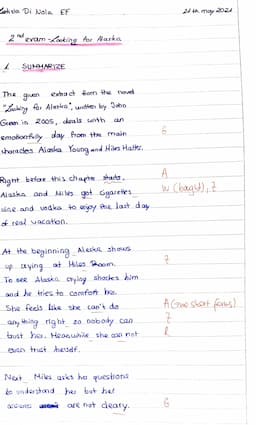 Di Nola EF
21th may 2021
2nd exam - Looking for Alaska
1. SUMMARIZE
The given extract from the novel
"Looking for Alaska", written by John
Green in 2005, deals with an
emotionfilly day from the main G
charactes Alaska Young and Miles Halter.
Right before this chapte starts, A
Alaska and Miles got Cigarettes W (bought), Z
vine and vodka to enjoy the last day
of real vacation.
At the beginning Alaska shows
up crying at Miles Room. Z
To see Alaska crying shockes him
and he tries to comfort her.
She feels like she can't do A (no short forms)
anything right so nobody can Z
trust her. Meanwhile she can not R
even trust herself.
Next Miles asks her questions
to understand her but her
are not cleary. G